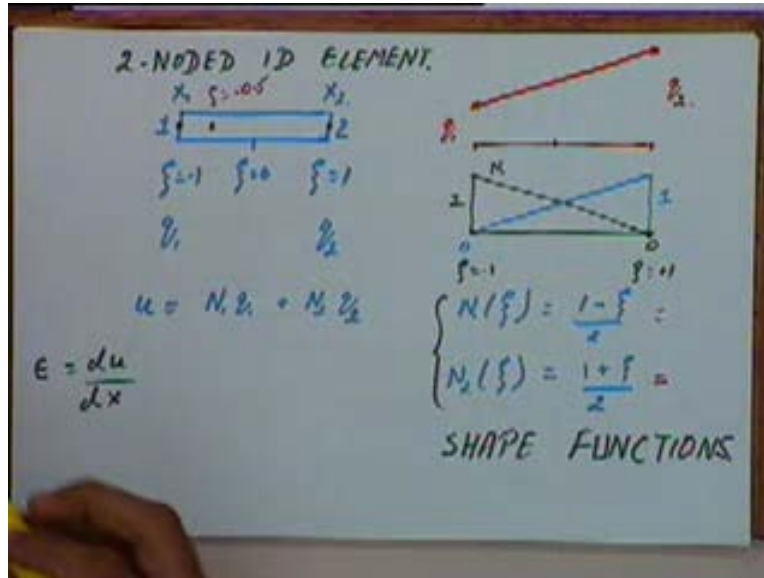 2-NODED 1D ELEMENT.
x₁ ξ=-0.5 x₂
1 2
ξ=-1 ξ=0 ξ=1
q₁ q₂
u = N₁q₁ + N₂q₂
ϵ = du/dx
q₁ q₂
N
1 1
0 0
ξ=-1 ξ=+1
N₁(ξ) = (1-ξ)/2 =
N₂(ξ) = (1+ξ)/2 =
SHAPE FUNCTIONS